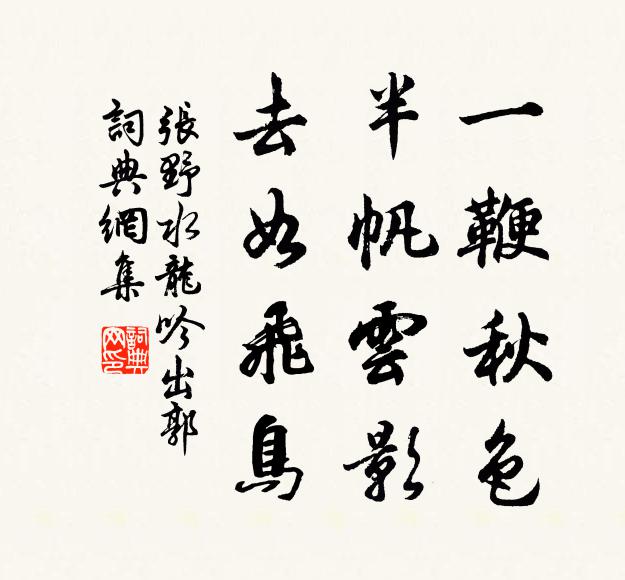 一鞭秋色
半帆雲影
去如飛鳥
張野水龍吟出郭
詞典網集
詞典網印